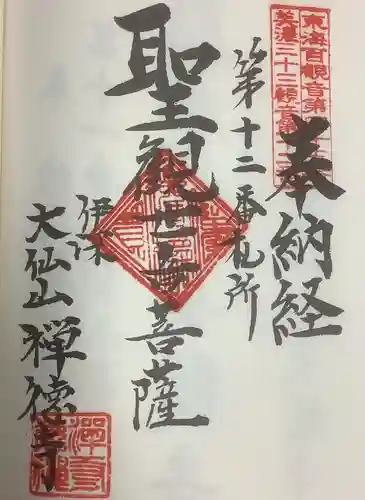 東海百観音第
美濃三十三観音第
奉納経
第十二番札所
聖観世音菩薩
伊深
大仙山禅徳寺